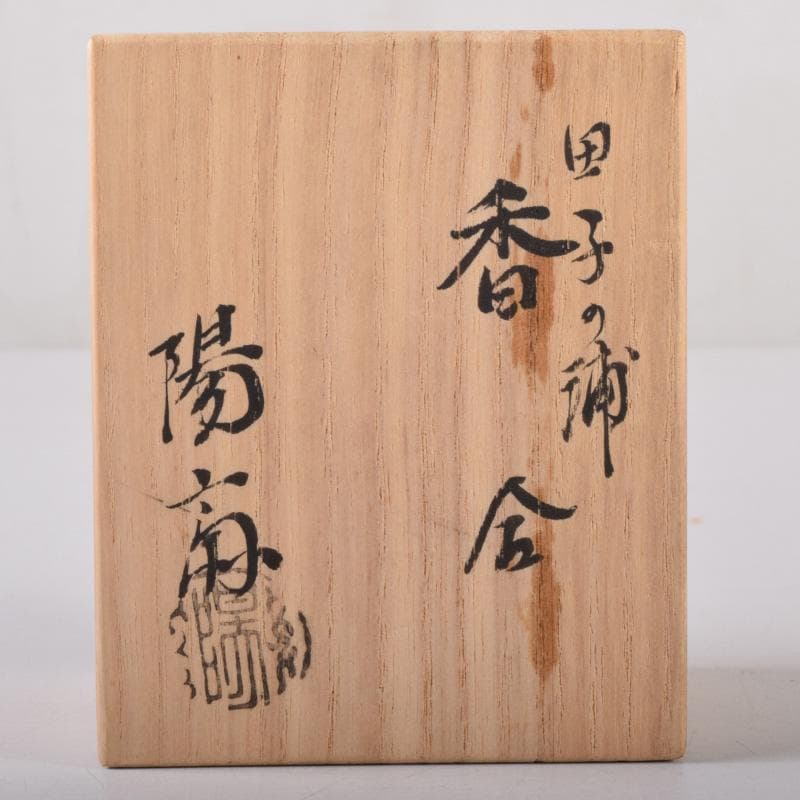 田子の浦
香合
陽斎